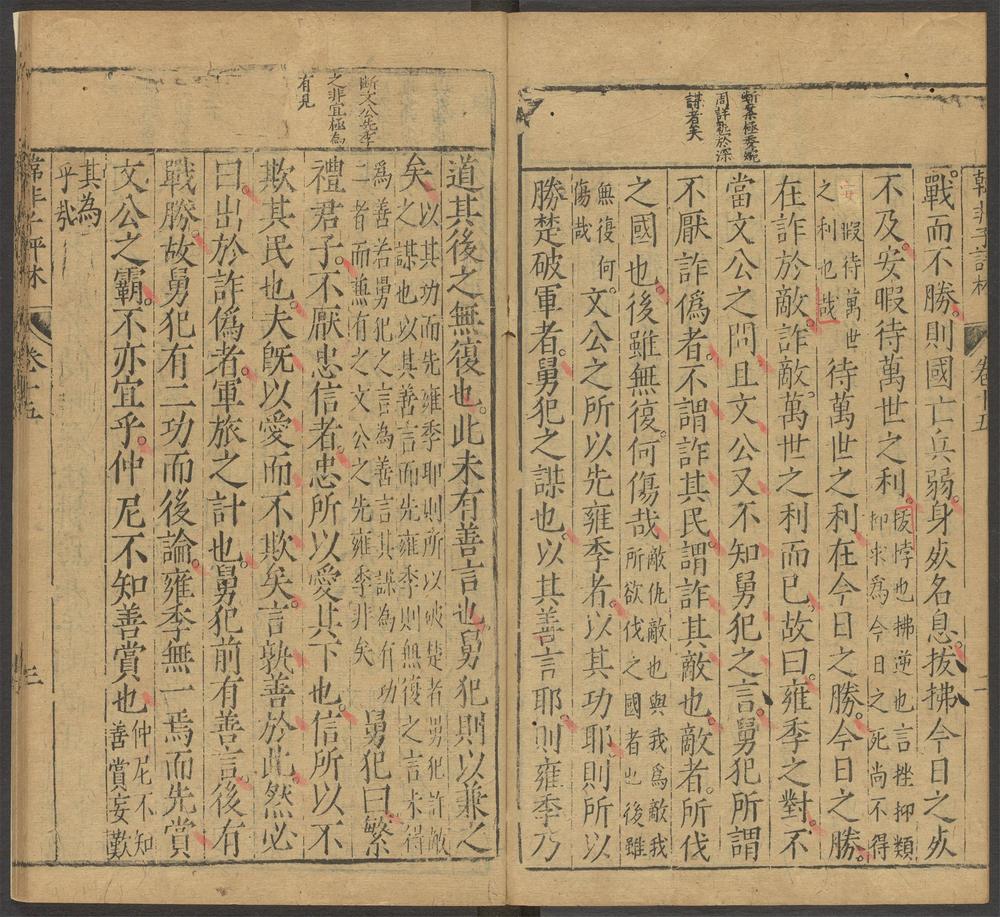 斷案極委婉
周詳熟於深
謀者矣
韓非子評林 卷十五 二
戰而不勝則國亡兵弱身死名息拔拂今日之死
不及安暇待萬世之利拔悖也拂逆也言挫抑類抑求爲今日之死尚不得
安暇待萬世之利也哉待萬世之利在今日之勝今日之勝
在詐於敵詐敵萬世之利而已故曰雍季之對不
當文公之問且文公又不知舅犯之言舅犯所謂
不厭詐偽者不謂詐其民謂詐其敵也敵者所伐
之國也後雖無復何傷哉敵仇敵也與我爲敵我所欲伐之國者也後雖
無復何傷哉文公之所以先雍季者以其功耶則所以
勝楚破軍者舅犯之謀也以其善言耶則雍季乃
斷文公先季
之非宜極為
有見
道其後之無復也此未有善言也舅犯則以兼之
矣以其功而先雍季耶則所以破楚者舅犯詐敵之謀也以其善言而先雍季則無復之言未得
為善若舅犯之言為善言其謀為有功二者而兼有之文公之先雍季非矣舅犯曰繁
禮君子不厭忠信者忠所以愛其下也信所以不
欺其民也夫既以愛而不欺矣言孰善於此然必
曰出於詐偽者軍旅之計也舅犯前有善言後有
戰勝故舅犯有二功而後論雍季無一焉而先賞
文公之霸不亦宜乎仲尼不知善賞也仲尼不知善賞妄歎
其為
乎哉
韓非子評林 卷十五 三